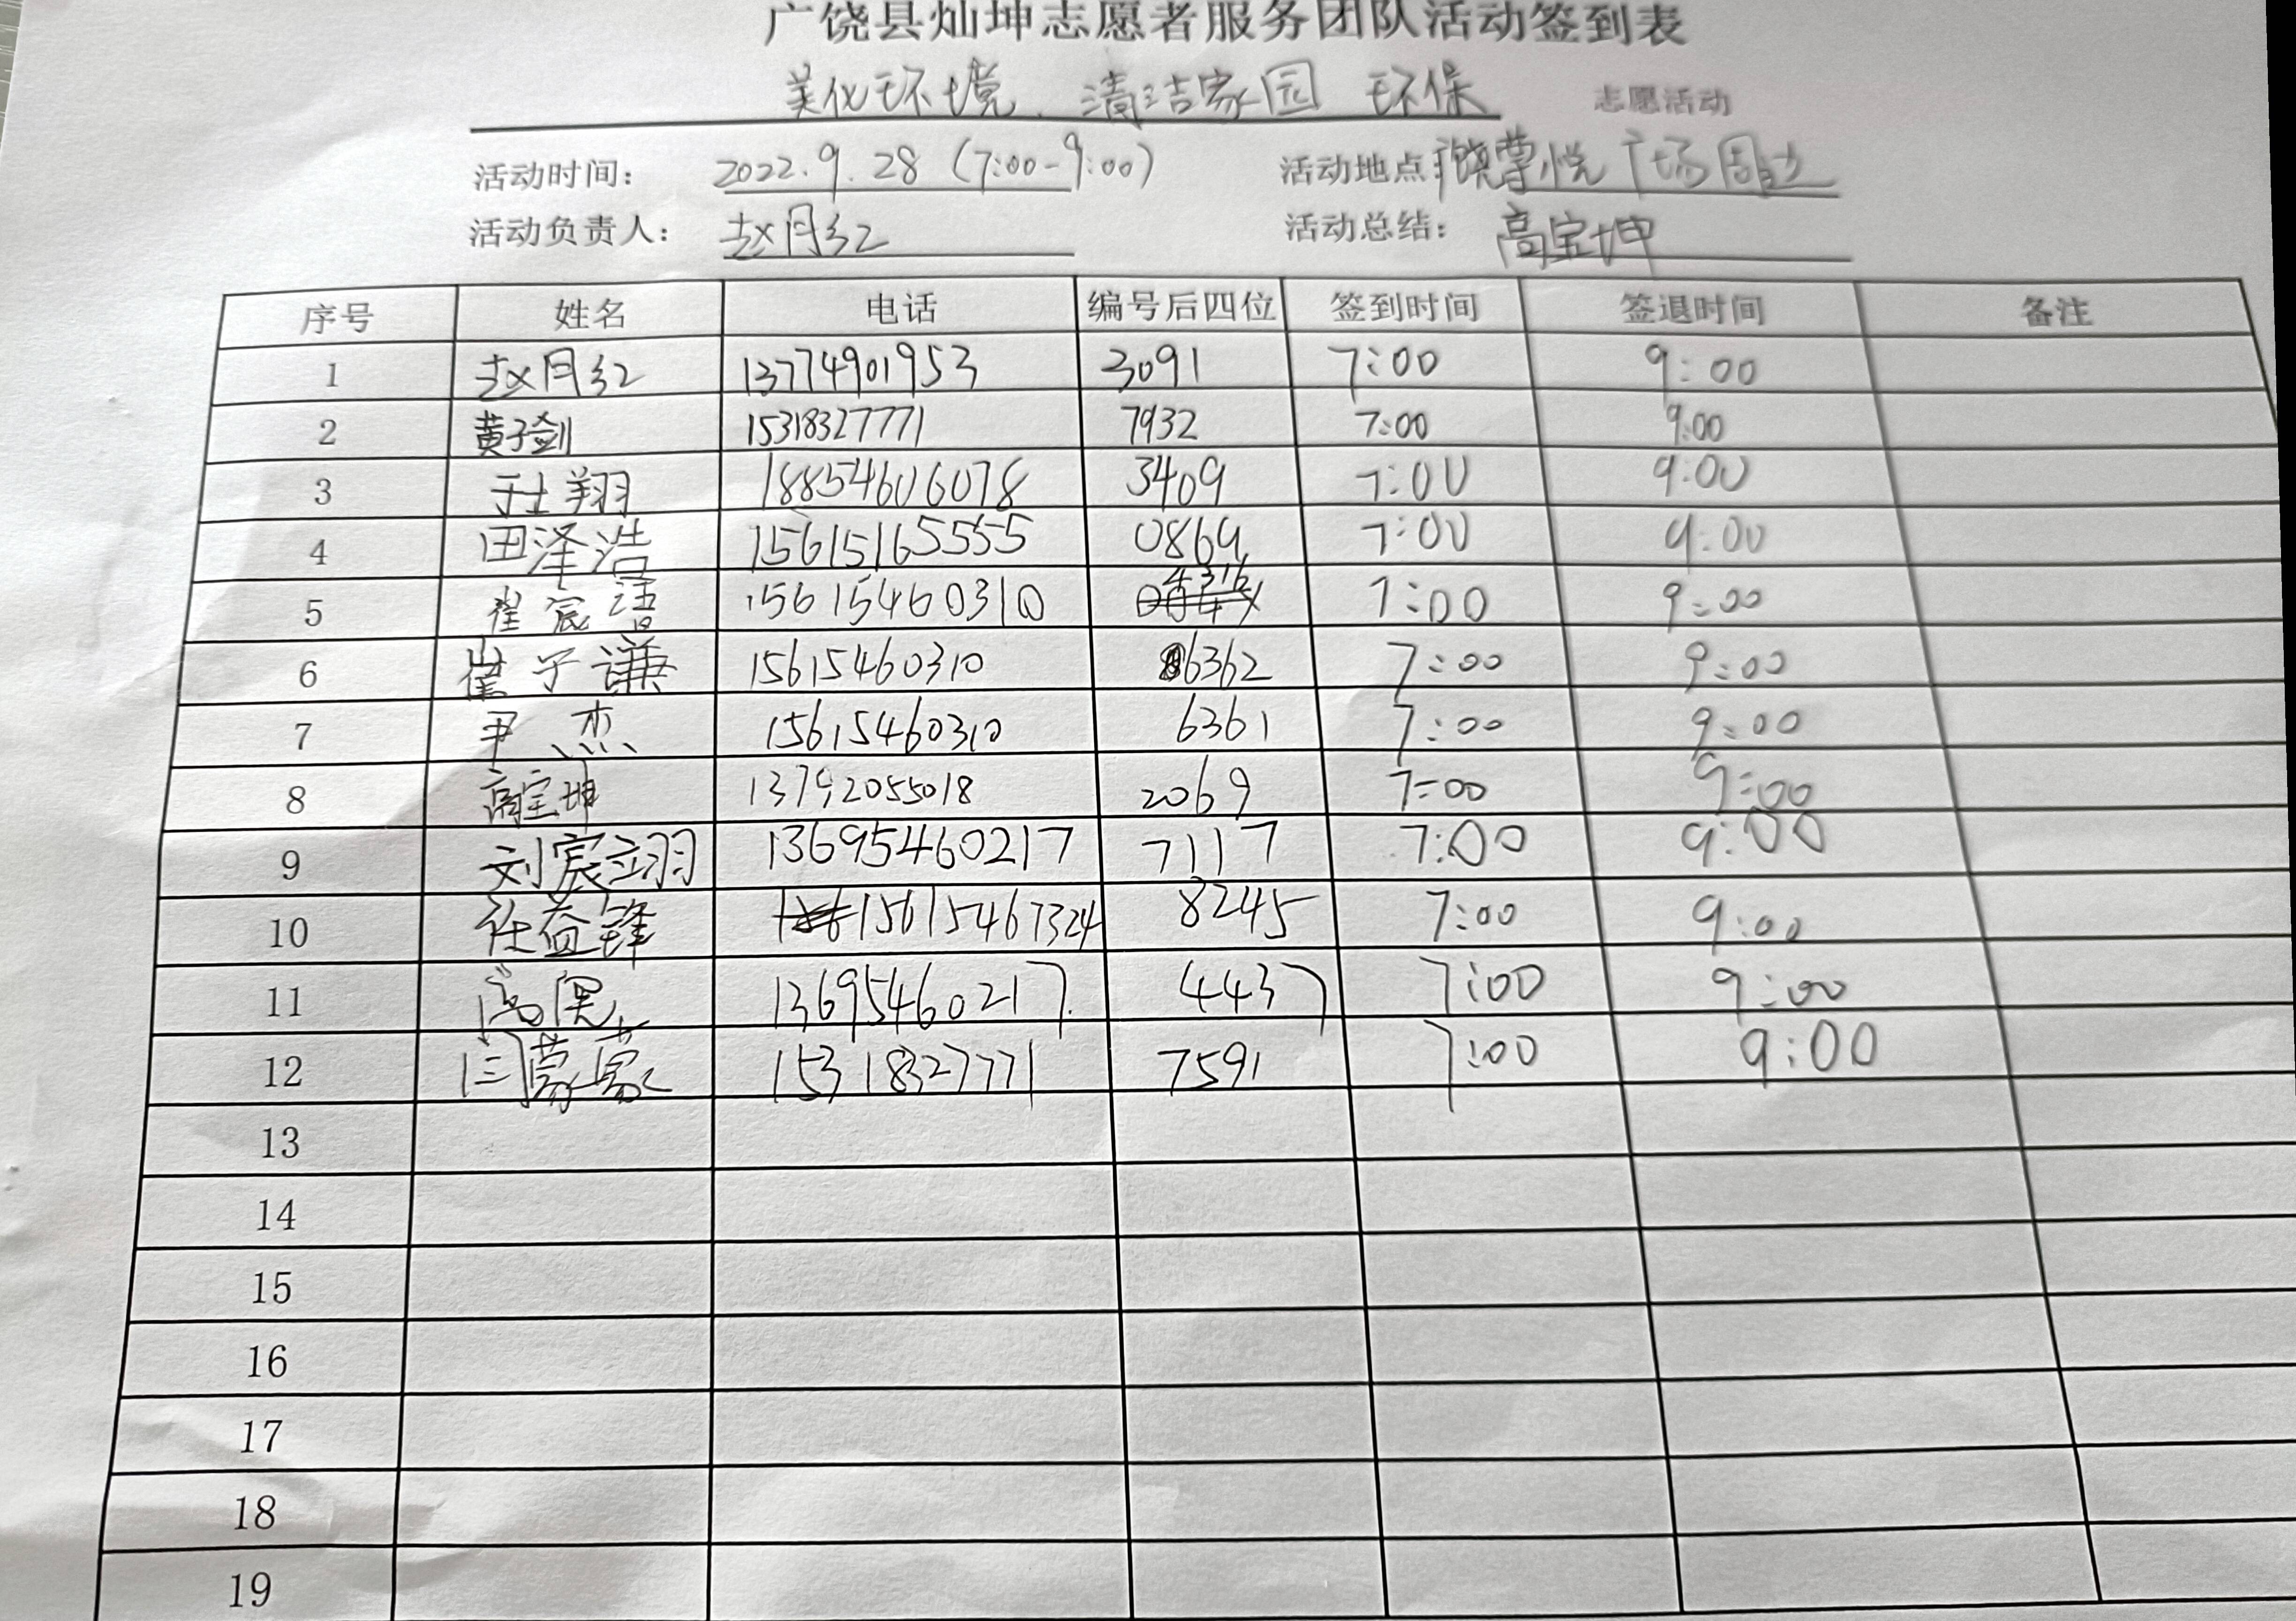 广饶县灿坤志愿者服务团队活动签到表
美化环境、清洁家园 环保 志愿活动
活动时间： 2022.9.28（7:00-9:00） 活动地点 尊悦广场周边
活动负责人： 赵月红 活动总结： 高宝坤
序号 姓名 电话 编号后四位 签到时间 签退时间 备注
1 赵月红 13774901953 3091 7:00 9:00
2 黄子剑 15318327771 7932 7:00 9:00
3 翔 18854606078 3409 7:00 9:00
4 田泽浩 15615165555 0869 7:00 9:00
5 崔宸语 15615460310 4316 7:00 9:00
6 崔子谦 15615460310 6362 7:00 9:00
7 尹杰 15615460310 6361 7:00 9:00
8 高宝坤 13792055018 2069 7:00 9:00
9 刘宸翊 13695460217 7117 7:00 9:00
10 任益锋 15615467324 8245 7:00 9:00
11 高 13695460217 4437 7:00 9:00
12 闫蒙蒙 15318327771 7591 7:00 9:00
13
14
15
16
17
18
19